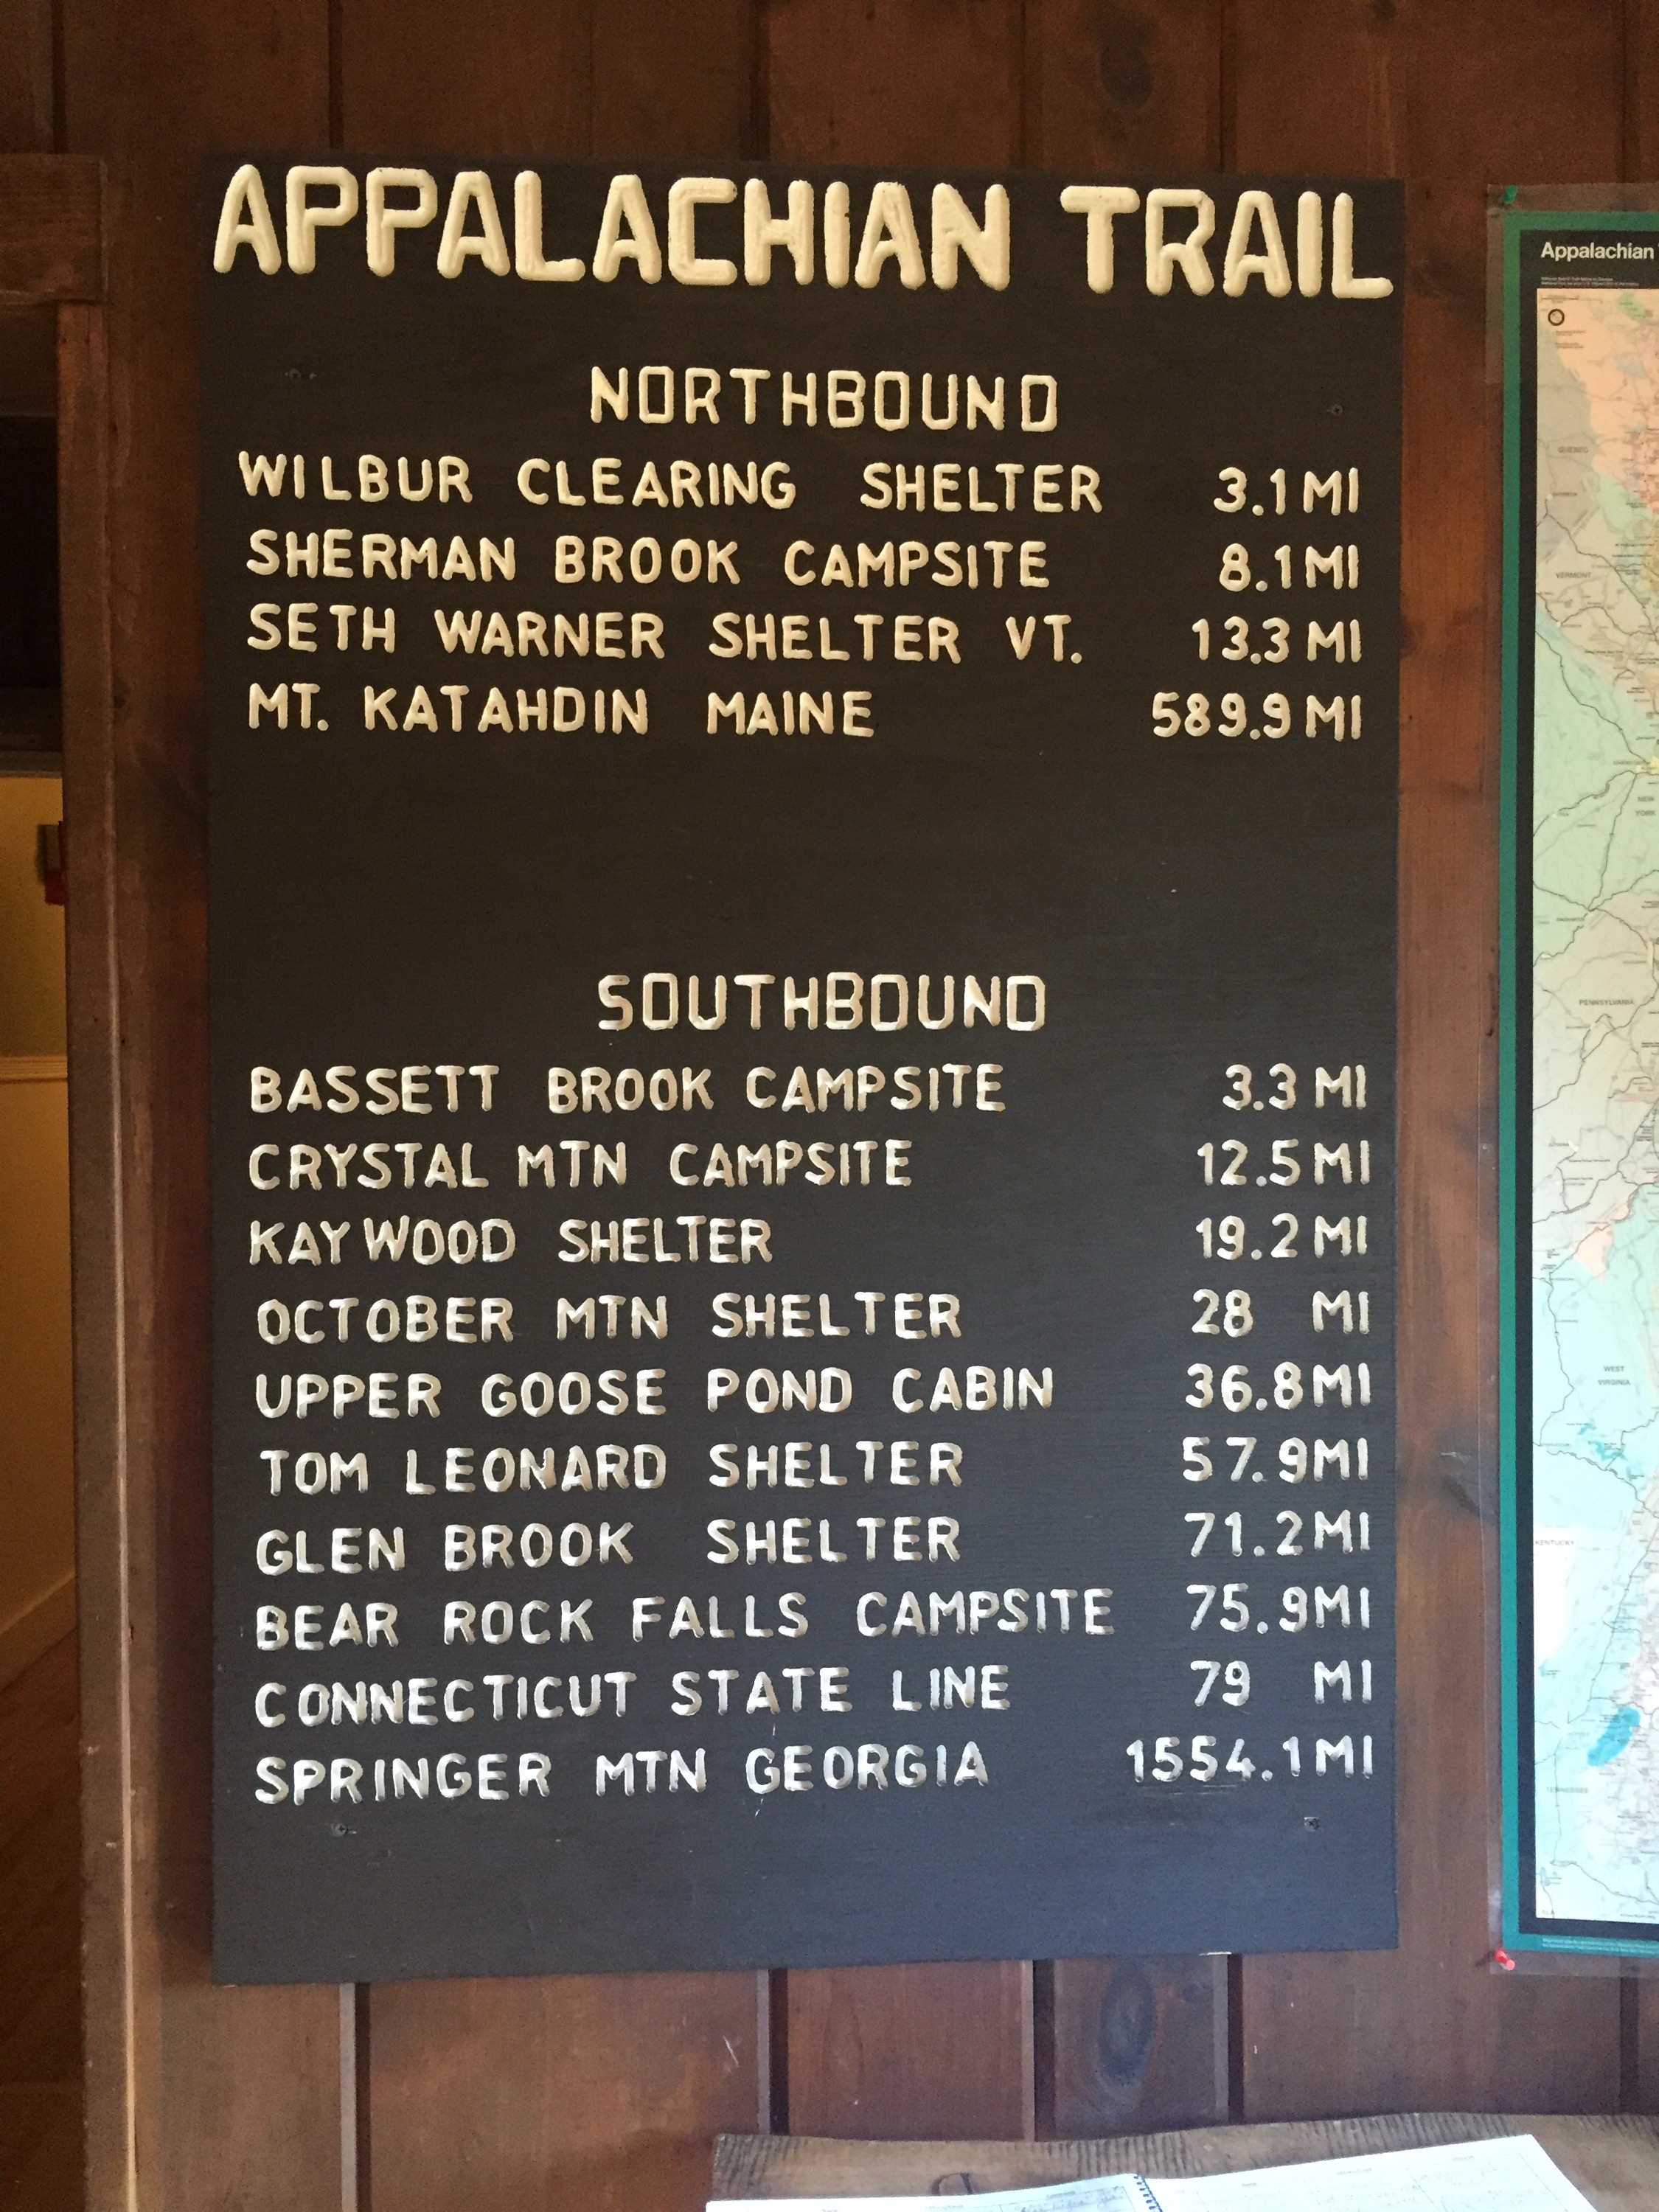 APPALACHIAN TRAIL
NORTHBOUND
WILBUR CLEARING SHELTER 3.1 MI
SHERMAN BROOK CAMPSITE 8.1 MI
SETH WARNER SHELTER VT. 13.3 MI
MT. KATAHDIN MAINE 589.9 MI
SOUTHBOUND
BASSETT BROOK CAMPSITE 3.3 MI
CRYSTAL MTN CAMPSITE 12.5 MI
KAY WOOD SHELTER 19.2 MI
OCTOBER MTN SHELTER 28 MI
UPPER GOOSE POND CABIN 36.8 MI
TOM LEONARD SHELTER 57.9 MI
GLEN BROOK SHELTER 71.2 MI
BEAR ROCK FALLS CAMPSITE 75.9 MI
CONNECTICUT STATE LINE 79 MI
SPRINGER MTN GEORGIA 1554.1 MI
Appalachian
QUEBEC
VERMONT
NEW
YORK
PENNSYLVANIA
WEST
VIRGINIA
KENTUCKY
TENNESSEE